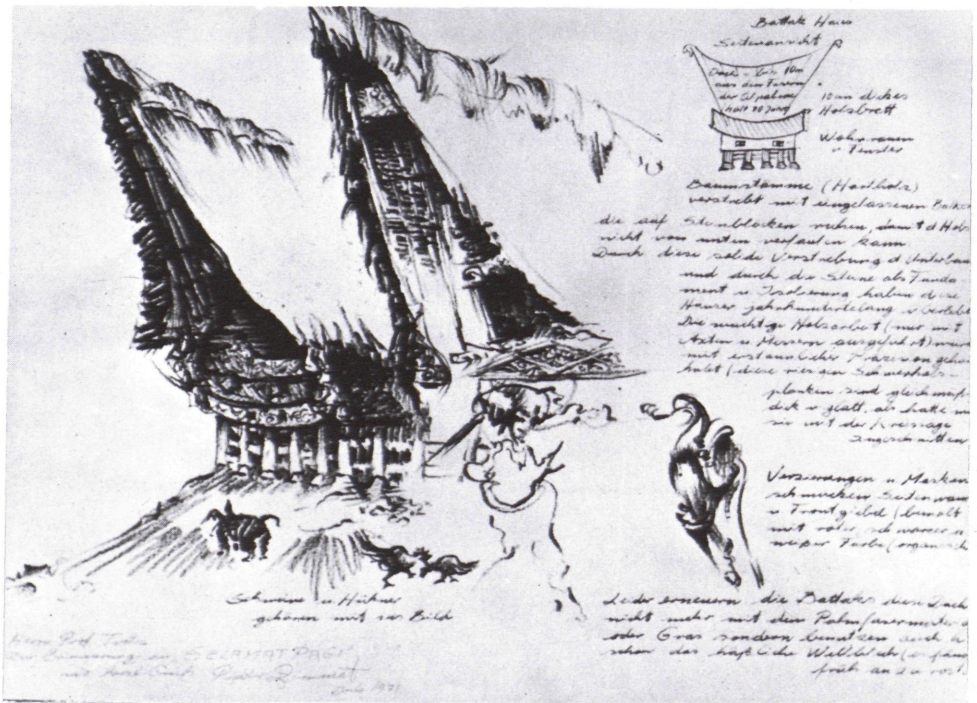 Battak Haus
Seitenansicht
Dach - bis 10m
aus den Fasern
der Ölpalme
hält 80 Jahre
10 cm dickes
Holzbrett
Wohnraum
u Fenster
Baumstämme (Hartholz)
verstrebt mit eingelassenen Balken
die auf Steinblöcken ruhen, damit d Holz
nicht von unten verfaulen kann
Durch diese solide Verstrebung d Unterbau
und durch die Steine als Funda
ment u Isolierung haben diese
Häuser jahrhundertelang überlebt
Die wuchtige Holzarbeit (nur mit
Äxten u Messern ausgeführt) wurde
mit erstaunlicher Präzision
diese riesigen
planken sind gleichmäß
dick u glatt, als hätte m
sie mit der Kreissäge
zugeschnitten
Verzierungen u Masken
schmücken Seitenwand
u Frontgiebel (bemalt
mit roter, schwarzer u
weißer Farbe (organisch
Schweine u Hühner
gehören mit ins Bild
Leider erneuern die Battaks diese Dach
nicht mehr mit dem Palmfasermaterial
oder Gras sondern benutzen auch
schon das häßliche Wellblech
früh an zu rost
Herrn Prof.
Zur Erinnerung an SELAMAT PAGI